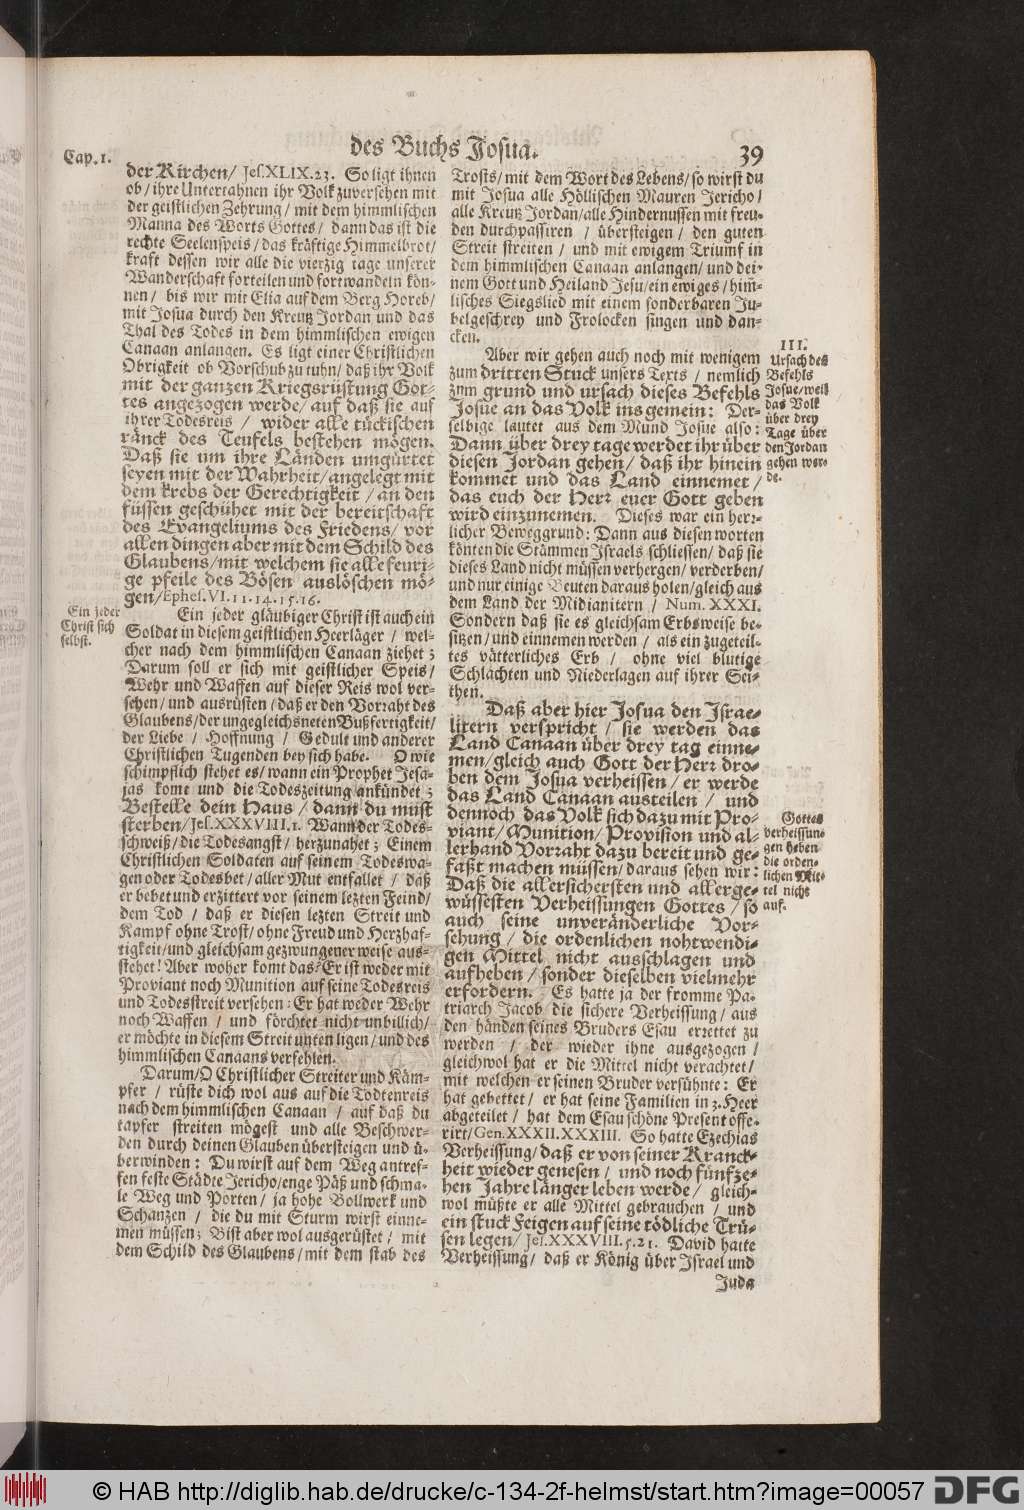 Cap. 1.
des Buchs Josua.
39
der Kirchen/ Jes. XLIX. 23. So ligt ihnen
ob/ ihre Untertahnen ihr Volk zuversehen mit
der geistlichen Zehrung/ mit dem himmlischen
Manna des Worts Gottes/ dann das ist die
rechte Seelenspeis/ das kräftige Himmelbrot/
kraft dessen wir alle die vierzig tage unserer
Wanderschaft forteilen und fortwandeln kön-
nen/ bis wir mit Elia auf dem Berg Horeb/
mit Josua durch den Kreutz Jordan und das
Thal des Todes in dem himmlischen ewigen
Canaan anlangen. Es ligt einer Christlichen
Obrigkeit ob Vorschub zu tuhn/ daß ihr Volk
mit der ganzen Kriegsrüstung Got-
tes angezogen werde/ auf daß sie auf
ihrer Todesreis / wider alle tückischen
ränck des Teufels bestehen mögen.
Daß sie um ihre Länden umgürtet
seyen mit der Wahrheit/ angelegt mit
dem krebs der Gerechtigkeit / an den
füssen geschühet mit der bereitschaft
des Evangeliums des Friedens/ vor
allen dingen aber mit dem Schild des
Glaubens/ mit welchem sie alle feuri-
ge pfeile des Bösen auslöschen mö-
gen/ Ephes. VI. 11. 14. 15. 16.
Ein jeder
Christ sich
selbst.
Ein jeder gläubiger Christ ist auch ein
Soldat in diesem geistlichen Heerläger / wel-
cher nach dem himmlischen Canaan ziehet;
Darum soll er sich mit geistlicher Speis/
Wehr und Waffen auf dieser Reis wol ver-
sehen/ und ausrüsten/ daß er den Vorraht des
Glaubens/ der ungegleichsneten Bußfertigkeit/
der Liebe / Hoffnung / Gedult und anderer
Christlichen Tugenden bey sich habe. O wie
schimpflich stehet es/ wann ein Prophet Jesa-
jas komt und die Todeszeitung ankündet;
Bestelle dein Haus / dann du must
sterben/ Jes. XXXVIII. 1. Wann der Todes-
schweiß/ die Todesangst/ herzunahet; Einem
Christlichen Soldaten auf seinem Todeswa-
gen oder Todesbet/ aller Mut entfallet / daß
er bebet und erzittert vor seinem lezten Feind/
dem Tod / daß er diesen lezten Streit und
Kampf ohne Trost/ ohne Freud und Herzhaf-
tigkeit/ und gleichsam gezwungener weise aus-
stehet! Aber woher komt das? Er ist weder mit
Proviant noch Munition auf seine Todesreis
und Todesstreit versehen: Er hat weder Wehr
noch Waffen / und förchtet nicht unbillich/
er möchte in diesem Streit unten ligen/ und des
himmlischen Canaans verfehlen.
Darum/ O Christlicher Streiter und Käm-
pfer / rüste dich wol aus auf die Todtenreis
nach dem himmlischen Canaan / auf daß du
tapfer streiten mögest und alle Beschwer-
den durch deinen Glauben übersteigen und ü-
berwinden: Du wirst auf dem Weg antref-
fen feste Städte Jericho/ enge Päß und schma-
le Weg und Porten/ ja hohe Bollwerk und
Schanzen / die du mit Sturm wirst einne-
men müssen; Bist aber wol ausgerüstet/ mit
dem Schild des Glaubens/ mit dem stab des
Trosts/ mit dem Wort des Lebens/ so wirst du
mit Josua alle Höllischen Mauren Jericho/
alle Kreutz Jordan/ alle Hindernussen mit freu-
den durchpassiren / übersteigen / den guten
Streit streiten / und mit ewigem Triumf in
dem himmlischen Canaan anlangen/ und dei-
nem Gott und Heiland Jesu/ ein ewiges/ him̃-
lisches Siegslied mit einem sonderbaren Ju-
belgeschrey und Frolocken singen und dan-
cken.
Aber wir gehen auch noch mit wenigem
zum dritten Stuck unsers Texts / nemlich
zum grund und ursach dieses Befehls
Josue an das Volk ins gemein: Der-
selbige lautet aus dem Mund Josue also:
Dann über drey tage werdet ihr über
diesen Jordan gehen/ daß ihr hinein
kommet und das Land einnemet/
das euch der Herr euer Gott geben
wird einzunemen. Dieses war ein herr-
licher Beweggrund: Dann aus diesen worten
könten die Stämmen Israels schliessen/ daß sie
dieses Land nicht müssen verhergen/ verderben/
und nur einige Beuten daraus holen/ gleich aus
dem Land der Midianitern / Num. XXXI.
Sondern daß sie es gleichsam Erbsweise be-
sitzen/ und einnemen werden / als ein zugeteil-
tes vätterliches Erb / ohne viel blutige
Schlachten und Niederlagen auf ihrer Sei-
then.
III.
Ursach des
Befehls
Josue/ weil
das Volk
über drey
Tage über
den Jordan
gehen wer-
de.
Daß aber hier Josua den Israe-
litern verspricht/ sie werden das
Land Canaan über drey tag einne-
men/ gleich auch Gott der Herr dro-
ben dem Josua verheissen/ er werde
das Land Canaan austeilen / und
dennoch das Volk sich dazu mit Pro-
viant/ Munition/ Provision und al-
lerhand Vorraht dazu bereit und ge-
faßt machen müssen/ daraus sehen wir:
Daß die allersichersten und allerge-
wüssesten Verheissungen Gottes/ so
auch seine unveränderliche Vor-
sehung / die ordenlichen nohtwendi-
gen Mittel nicht ausschlagen und
aufheben / sonder dieselben vielmehr
erfordern. Es hatte ja der fromme Pa-
triarch Jacob die sichere Verheissung/ aus
den händen seines Bruders Esau errettet zu
werden / der wieder ihne ausgezogen /
gleichwol hat er die Mittel nicht verachtet/
mit welchen er seinen Bruder versühnte: Er
hat gebettet/ er hat seine Familien in 3. Heer
abgeteilet/ hat dem Esau schöne Present offe-
rirt/ Gen. XXXII. XXXIII. So hatte Ezechias
Verheissung/ daß er von seiner Kranck-
heit wieder genesen/ und noch fünfze-
hen Jahre länger leben werde/ gleich-
wol müßte er alle Mittel gebrauchen / und
ein stuck Feigen auf seine tödliche Trü-
sen legen/ Jes. XXXVIII. 5. 21. David hatte
Verheissung/ daß er König über Israel und
Juda
Gottes
verheissun-
gen heben
die orden-
lichen Mit-
tel nicht
auf.
© HAB http://diglib.hab.de/drucke/c-134-2f-helmst/start.htm?image=00057
DFG